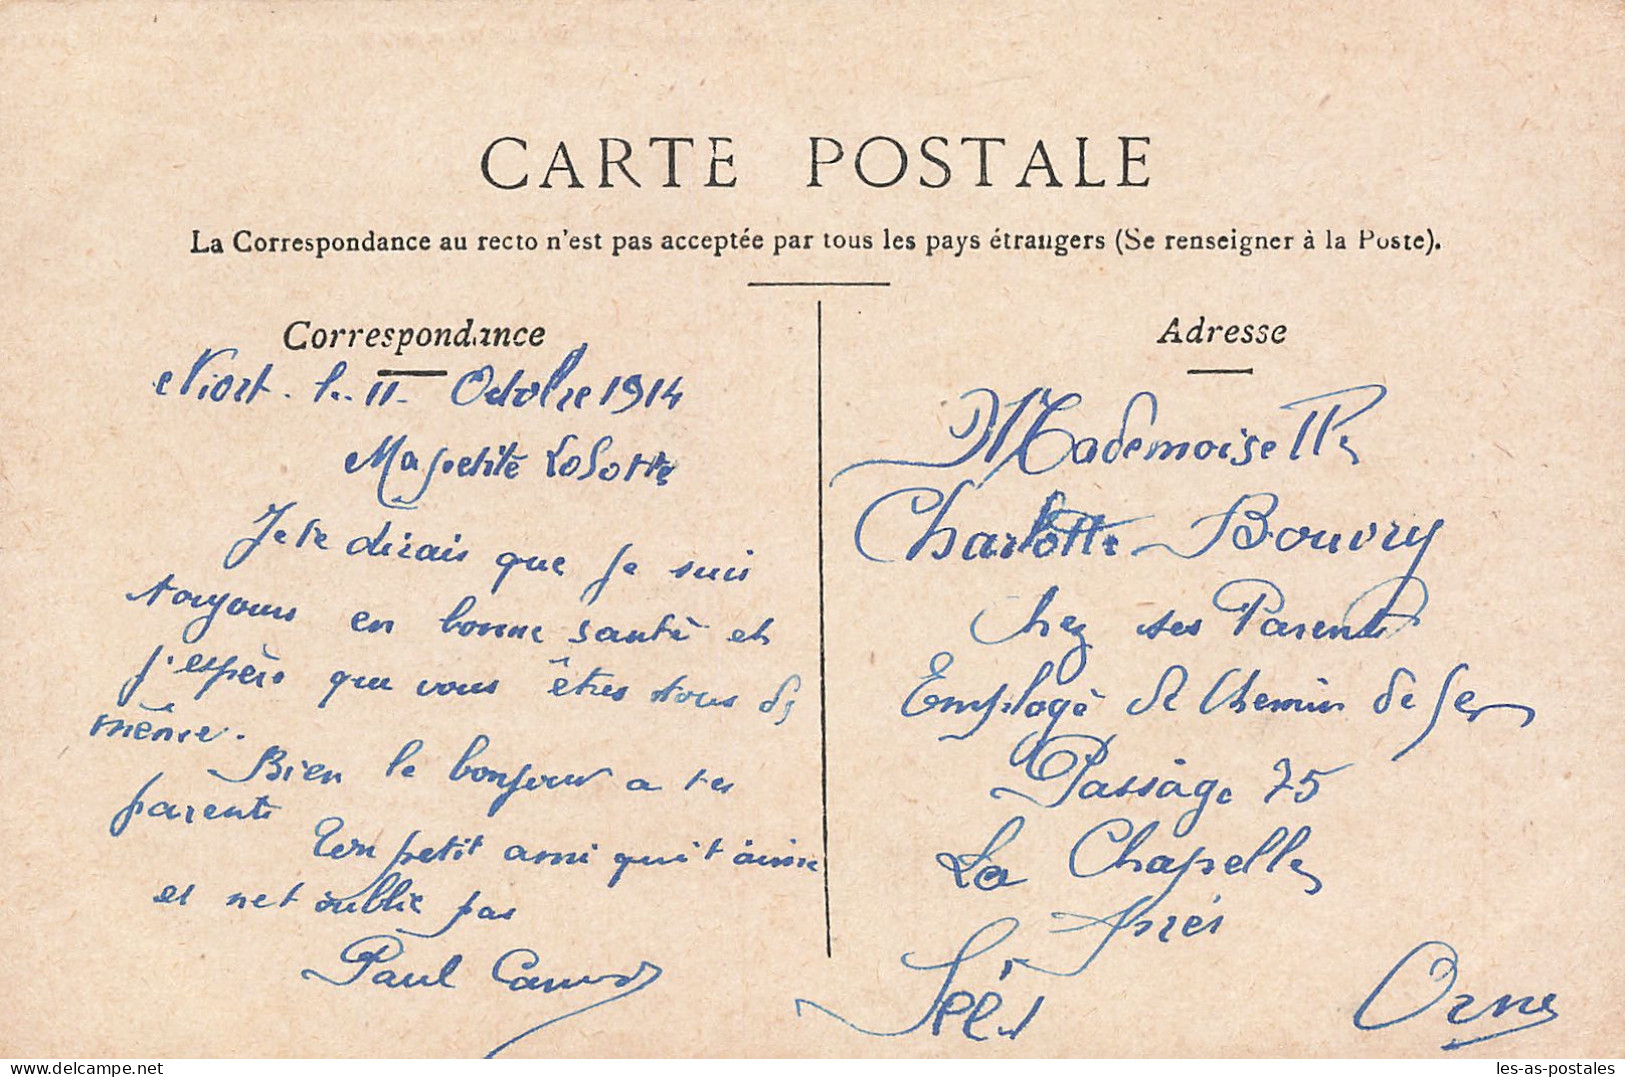 CARTE POSTALE
La Correspondance au recto n'est pas acceptée par tous les pays étrangers (Se renseigner à la Poste).
Correspondance
Niort. le 11 Octobre 1914
Ma petite Lolotte
Je te dirais que je suis
toujours en bonne santé et
j'espère que vous êtes tous de
même.
Bien le bonjour a tes
parents
Ton petit ami qui t'aime
et net oublie pas
Paul
Adresse
Mademoiselle
Charlotte Bouvry
Chez ses Parents
Employé de Chemin de fer
Passage 75
La Chapelle
près
Sées
Orne
delcampe.net
les-as-postales